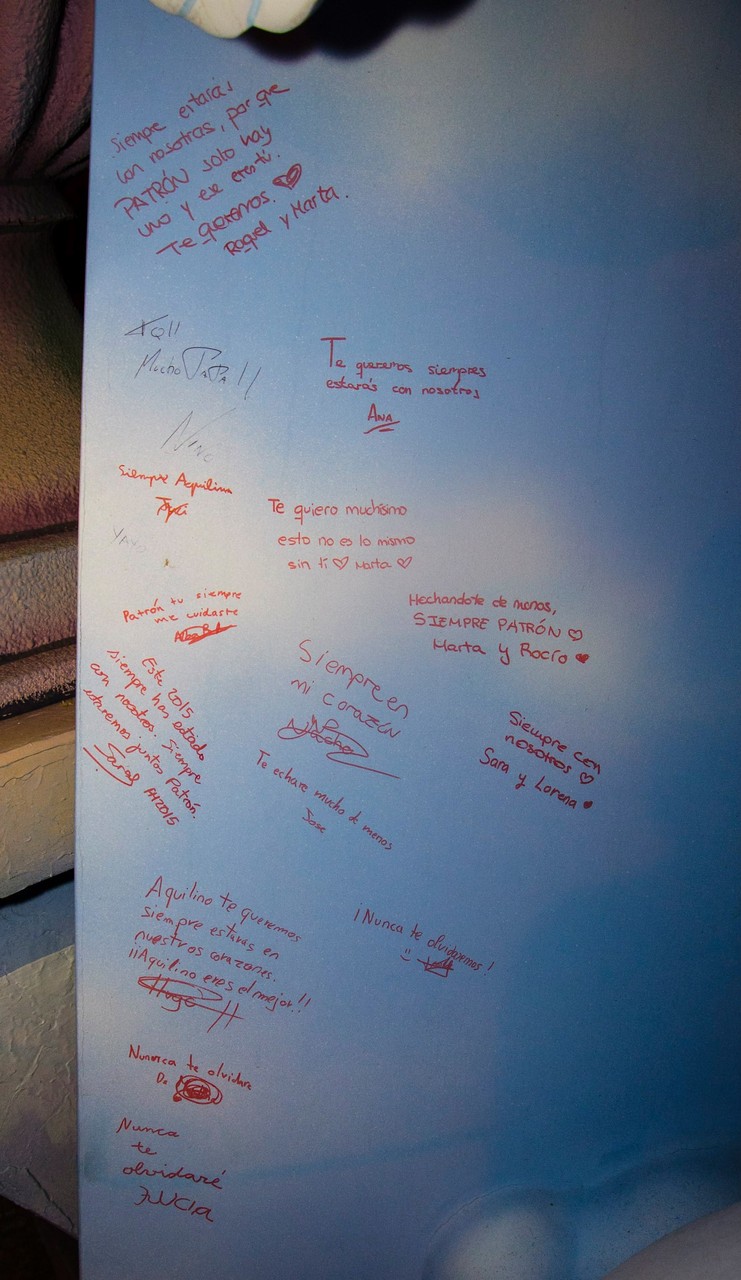 Siempre estarás
con nosotras, por que
PATRÓN solo hay
uno y ese eres tú.
Te queremos. ♥
Raquel y Marta.
TQ!!
Mucho PaPa!!
Nino
Te queremos siempres
estarás con nosotros
ANA
Siempre Aquilino
Te quiero muchísimo
esto no es lo mismo
sin ti ♡ Marta ♡
YAYO
Patrón tu siempre
me cuidaste
Hechandote de menos,
SIEMPRE PATRÓN ♡
Marta y Rocío ♥
Siempre en
mi corazón
Este 2015
siempre has estado
con nosotros. Siempre
estaremos juntos Patrón.
Sara AH2015
Siempre con
nosotros ♡
Sara y Lorena ♥
Te echare mucho de menos
Jose
Aquilino te queremos
siempre estaras en
nuestros corazones.
¡¡Aquilino eres el mejor!!
Hugo
¡Nunca te olvidaremos!
Nunca te olvidare
De
Nunca
te
olvidaré
LUCIA